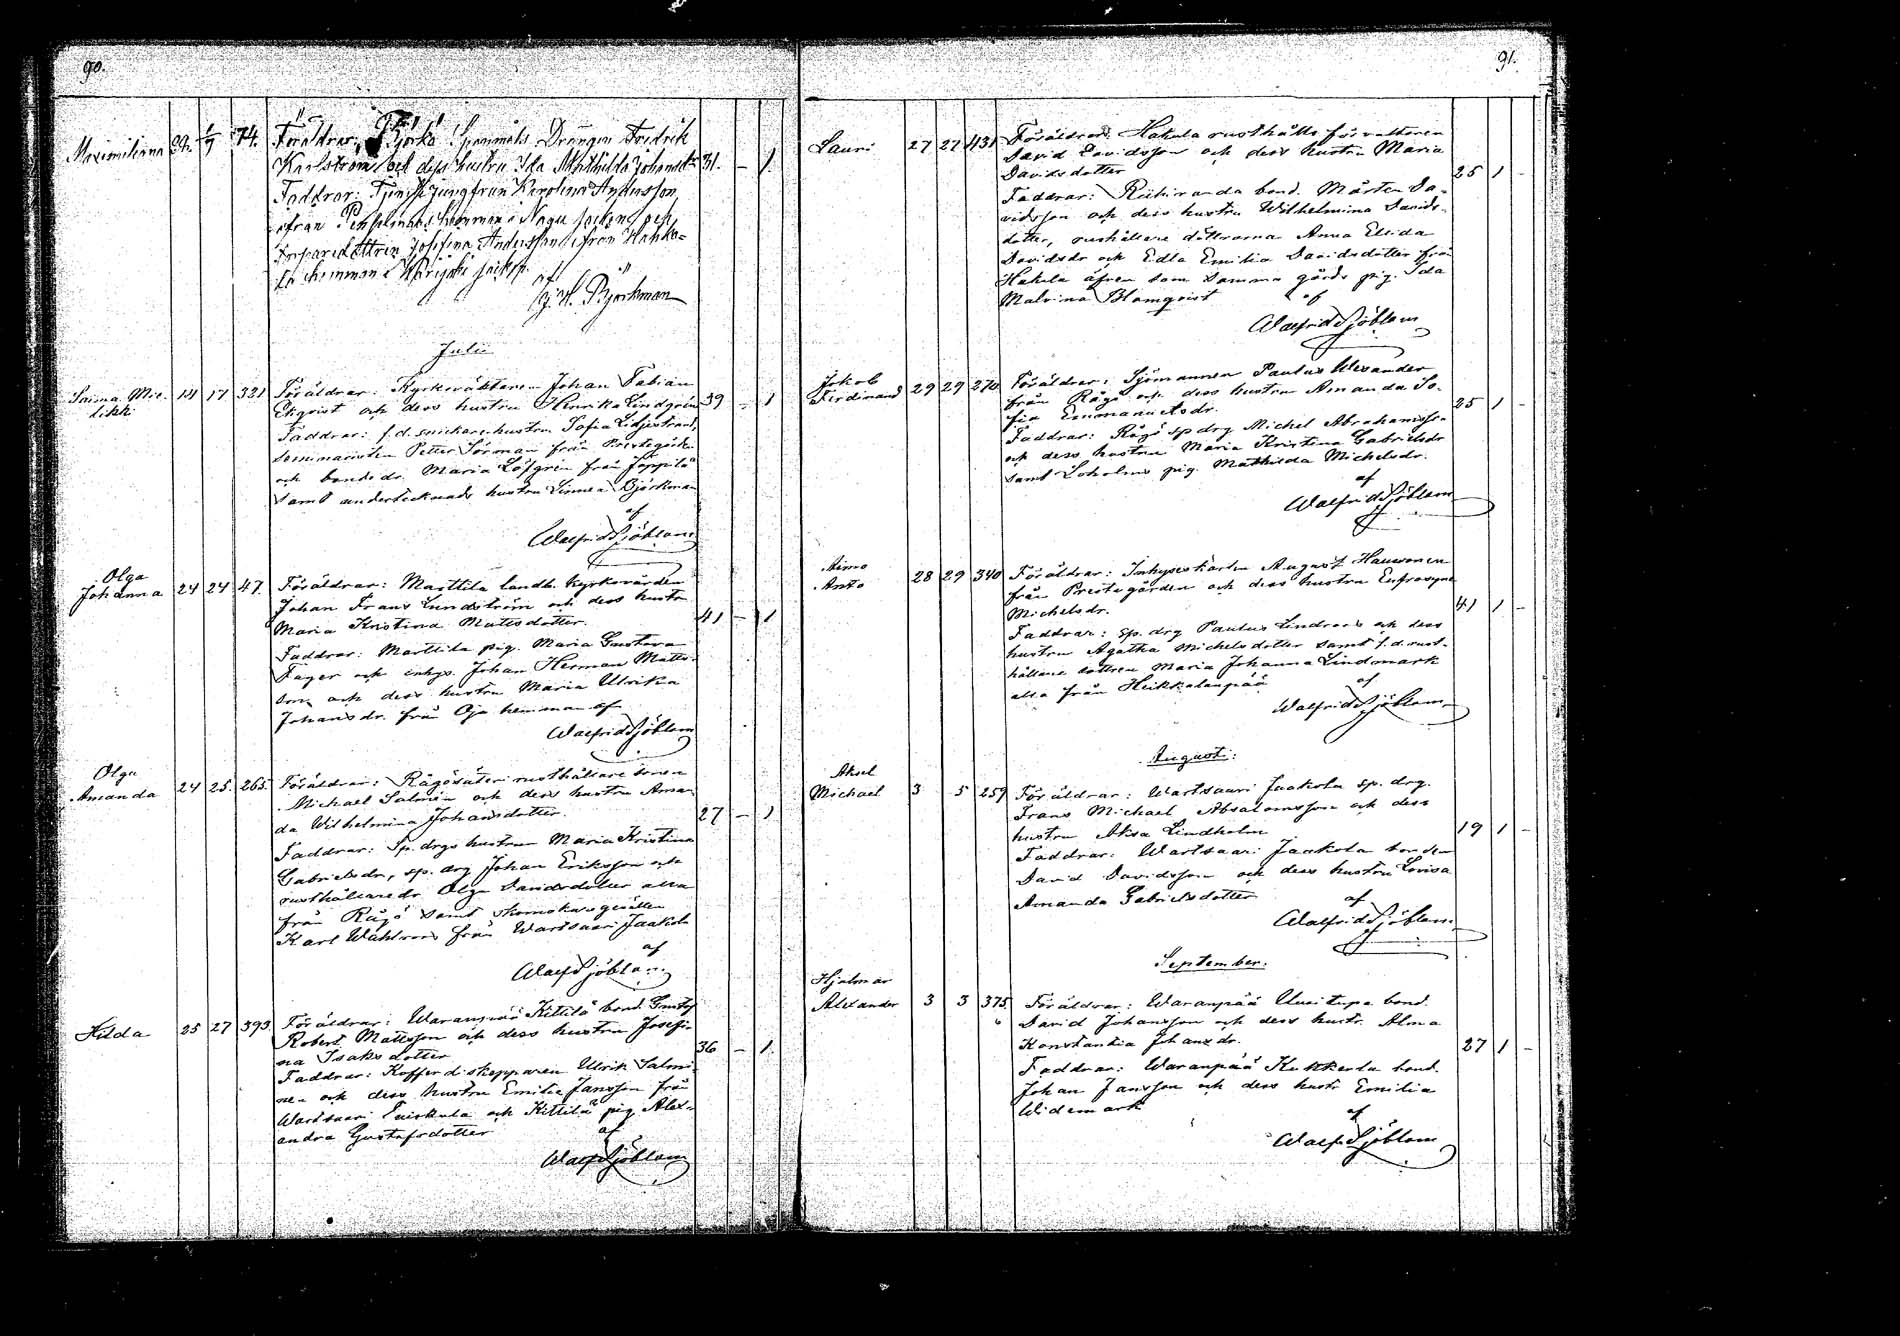 90.
Maximiliana 22. 1/7 74. Föräldrar: Björkö Spannmåls Drängen Fredrik
Karlström och dess hustru Ida Mathilda Johansdr 31. – 1.
Faddrar: Tjenste jungfrun Karolina Andersson
ifrån hemman i Nagu socken och
Andersson ifrån
hemman i socken.
af
J. H. Björkman
Juli
Saima Mie-
likki 14 17 321 Föräldrar: Kyrkväktaren Johan Fabian
Ekqvist och dess hustru Henrika Lindgren 39 – 1
Faddrar: f.d. snickare hustru Sofia Liljestrand,
seminaristen Petter Törman från Prestegården
och bondedr. Maria Löfgren från Jöppilä
samt undertecknads hustru Linnea Björkman
af
Walfrid Sjöblom
Olga
Johanna 24 24 47. Föräldrar: Marttila landb. kyrkovärden
Johan Frans Lundström och dess hustr.
Maria Kristina Matsdotter. 41 – 1
Faddrar: Marttila pig. Maria Gustava
Fager och inhys. Johan Herman Matts-
son och dess hustru Maria Ulrika
Johansdr. från Oja hemman af
Walfrid Sjöblom
Olga
Amanda 24 25. 265. Föräldrar: Rågösäteri rusthållare sonen
Michael Salmén och dess hustru Aman-
da Wilhelmina Johansdotter. 27 – 1
Faddrar: Sp. drgs hustrun Maria Kristina
Gabrielsdr, sp. drg Johan Eriksson och
rusthållaredr. Olga Davidsdotter alla
från Rågö samt skomakaregesällen
Karl Wahlroos från Wartsaari Jaakola
af
Walf. Sjöblom.
Hilda 25 27 393. Föräldrar: Waranpää Kittilä bond. Gustaf
Robert Mattsson och dess hustru Josefi-
na Isaksdotter 36 – 1.
Faddrar: Kofferdiskepparen Ulrik Salmi-
nen och dess hustru Emilia Jansson från
Wartsaari och Kittilä pig. Alex-
andra Gustafsdotter af
Walf. Sjöblom
91.
Lauri 27 27 431 Föräldrar: Hakula rusthålls förvaltaren
David Davidsson och dess hustru Maria
Davidsdotter 25 1 –
Faddrar: Riihiranda bond. Mårten Da-
vidsson och dess hustru Wilhelmina Davids-
dotter, rusthållare döttrarna Anna Elida
Davidsdr och Edla Emilia Davidsdotter från
Hakula äfven som samma gårds pig. Ida
Malvina Blomqvist af
Walfrid Sjöblom
Jakob
Ferdinand 29 29 270 Föräldrar: Sjömannen Paulus Alexander
från Rågö och dess hustru Amanda So-
fia Emmanuelsdr. 25 1 –
Faddrar: Rågö sp drg Michel Abrahamsson
och dess hustru Maria Kristina Gabrielsdr
samt Loholms pig. Mathilda Michelsdr.
af
Walfrid Sjöblom
Aimo
Anto 28 29 340 Föräldrar: Inhyseskarlen August Hauvonen
från Prestegården och dess hustru Eufrosyne
Michelsdr. 41 1 –
Faddrar: Sp. drg Paulus Lindroos och dess
hustru Agatha Michelsdotter samt f.d. rust-
hållare dottren Maria Johanna Lindmark
alla från Heikkalanpää af
Walfrid Sjöblom
Augusti:
Aksel
Michael 3 5 259 Föräldrar: Wartsaari Jaakola sp. drg.
Frans Michael Absalomsson och dess
hustru Alisa Lindholm 19 1 –
Faddrar: Wartsaari Jaakola bonden
David Davidsson och dess hustru Lovisa
Amanda Gabrielsdotter af
Walfrid Sjöblom
September.
Hjalmar
Alexander 3 3 375 Föräldrar: Waranpää Uusitupa bond.
David Johansson och dess hustr. Alma
Konstantia Johansdr. 27 1 –
Faddrar: Waranpää Kukkerla bond.
Johan Jansson och dess hustr Emilia
Widemark af
Walf. Sjöblom